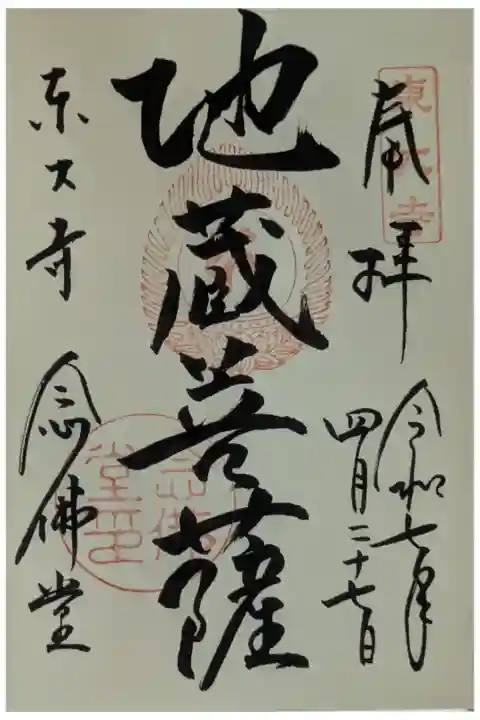 奉拝
東大寺
令和七年
四月二十七日
地蔵菩薩
東大寺
念佛堂
念佛堂印